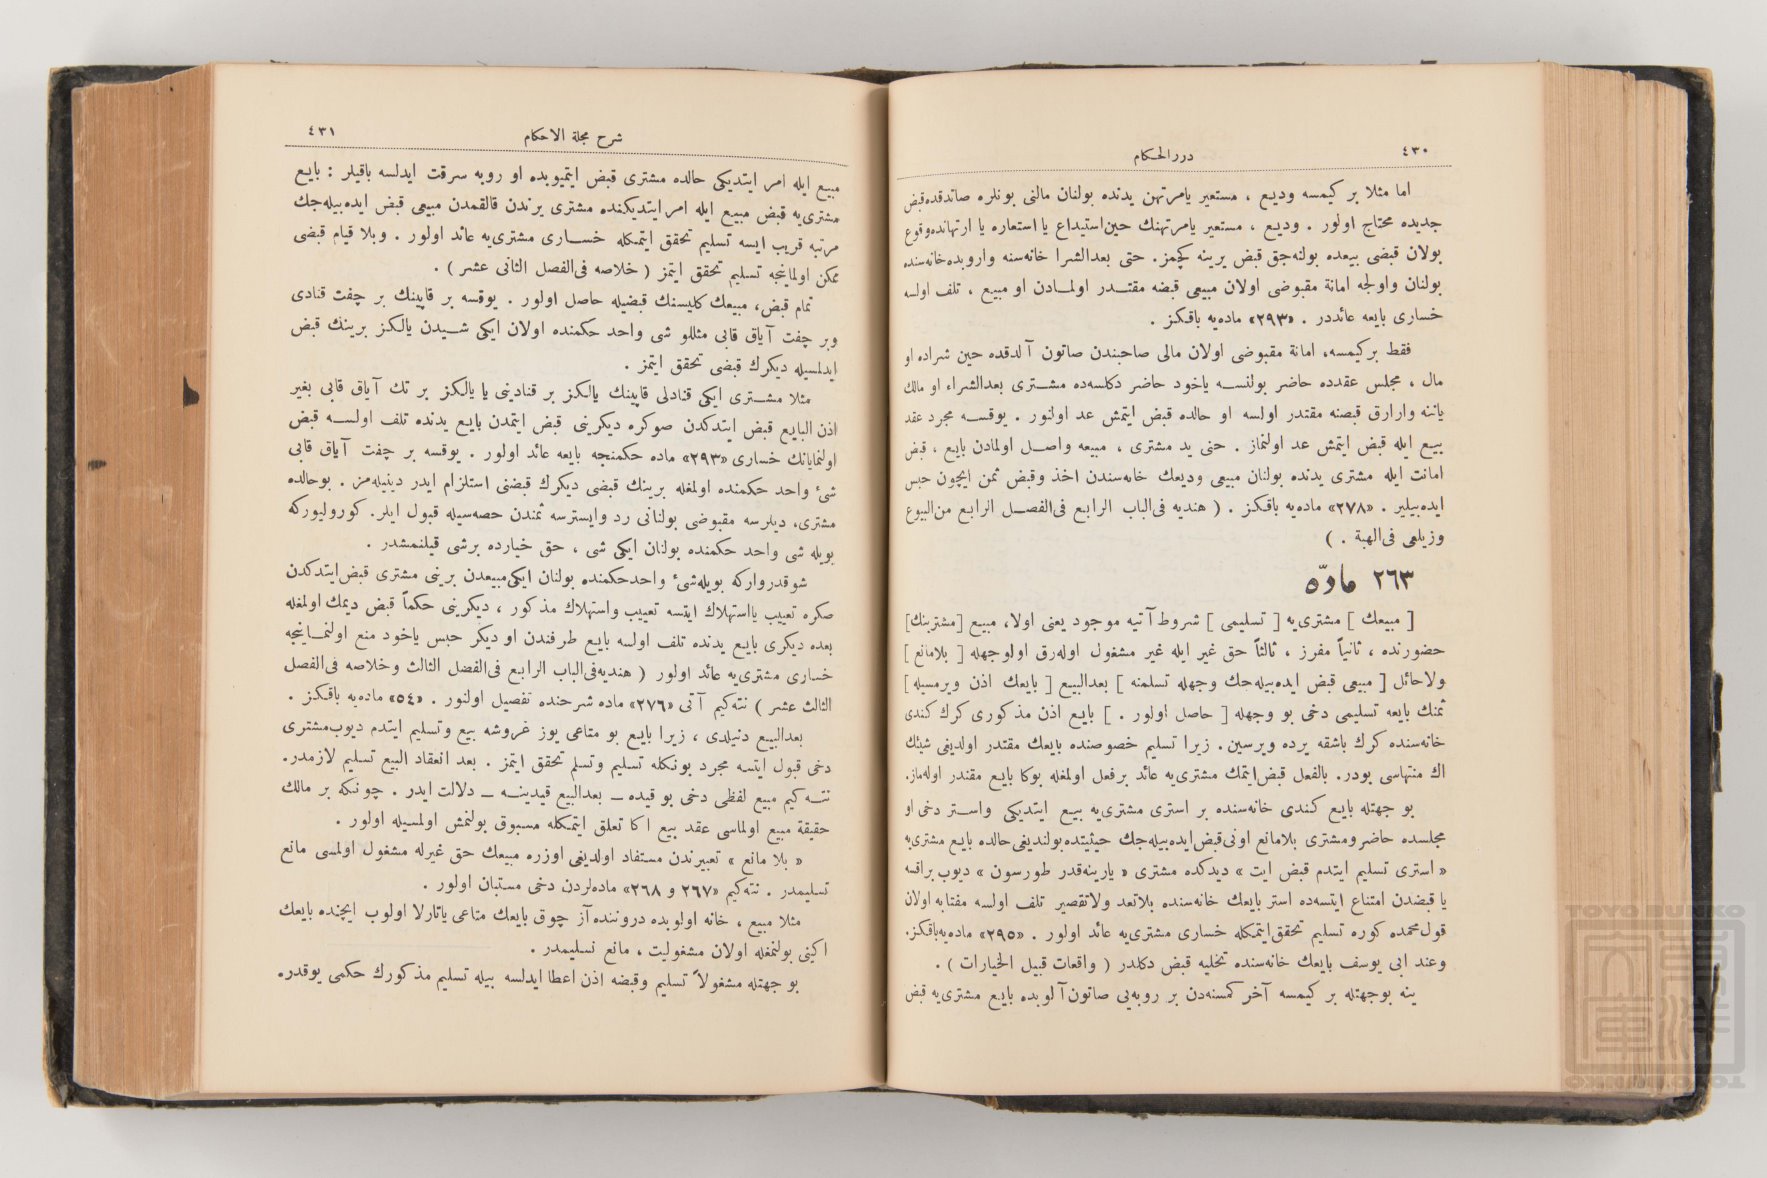 ٤٣٠
دررالحكام
اما مثلا بر كيمسه وديع ، مستعير يامرتهن يدنده بولنان مالنى بونلره صاتدقده‌قبض
جديده محتاج اولور . وديع ، مستعير يامرتهنك حين‌استيداع يا استعاره يا ارتهانده‌وقوع
بولان قبضى بيعده بولنه‌جق قبض يرينه كچمز. حتى بعدالشرا خانه‌سنه واروبده‌خانه‌سنده
بولنان واولجه امانة مقبوضى اولان مبيعى قبضه مقتــدر اولمــادن او مبيع ، تلف اولسه
خسارى بايعه عائددر . «٢٩٣» ماده‌يه باقكز .
فقط بركيمسه، امانة مقبوضى اولان مالى صاحبندن صاتون آلدقده حين شراده او
مال ، مجلس عقدده حاضر بولنســه ياخود حاضر دكلسه‌ده مشــترى بعدالشراء او مالك
ياننه وارارق قبضنه مقتدر اولسه او حالده قبض ايتمش عد اولنور . يوقســه مجرد عقد
بيع ايله قبض ايتمش عد اولنماز . حتى يد مشترى ، مبيعه واصــل اولمادن بايع ، قبض
امانت ايله مشترى يدنده بولنان مبيعى وديعك خانه‌سندن اخذ وقبض ثمن ايچون حبس
ايده‌بيلير . «٢٧٨» ماده‌يه باقكز . ( هنديه فى‌الباب الرابع فى‌الفصــل الرابع من‌البيوع
وزيلعى فى‌الهبة . )
٢٦٣ مادّه
[ مبيعك ] مشترى‌يه [ تسليمى ] شروط آتيه موجود يعنى اولا، مبيع [مشترينك]
حضورنده ، ثانياً مفرز ، ثالثاً حق غير ايله غير مشغول اوله‌رق اولوجهله [ بلامانع ]
ولاحائل [ مبيعى قبض ايده‌بيله‌جك وجهله تسلمنه ] بعدالبيع [ بايعك اذن ويرمسيله ]
ثمنك بايعه تسليمى دخى بو وجهله [ حاصل اولور . ] بايع اذن مذكورى كرك كندى
خانه‌سنده كرك باشقه يرده ويرسين. زيرا تسليم خصوصنده بايعك مقتدر اولديغى شيئك
اك منتهاسى بودر. بالفعل قبض‌ايتمك مشترى‌يه عائد برفعل اولمغله بوكا بايع مقتدر اوله‌ماز.
بو جهتله بايع كندى خانه‌سنده بر استرى مشترى‌يه بيع ايتديكى واســتر دخى او
مجلسده حاضر ومشترى بلامانع اونى‌قبض ايده‌بيله‌جك حيثيتده‌بولنديغى حالده بايع مشترى‌يه
« استرى تسليم ايتدم قبض ايت » ديدكده مشترى « يارينه‌قدر طورسون » ديوب براقسه
يا قبضدن امتناع ايتسه‌ده استر بايعك خانه‌سنده بلاتعد ولاتقصير تلف اولسه مفتابه اولان
قول‌محمده كوره تسليم تحقق‌ايتمكله خسارى مشترى‌يه عائد اولور . «٢٩٥» ماده‌يه‌باقكز.
وعند ابى يوسف بايعك خانه‌سنده تخليه قبض دكلدر ( واقعات قبيل الخيارات ) .
ينه بوجهتله بر كيمسه آخر كمسنه‌دن بر روبه‌يى صاتون‌آلوبده بايع مشترى‌يه قبض
شرح مجلة الاحكام
٤٣١
مبيع ايله امر ايتديكى حالده مشترى قبض ايتميوبده او روبه سرقت ايدلسه باقيلر : بايع
مشترى‌يه قبض مبيع ايله امر ايتديكنده مشترى يرندن قالقمدن مبيعى قبض ايده‌بيله‌جك
مرتبه قريب ايسه تسليم تحقق ايتمكله خســارى مشترى‌يه عائد اولور . وبلا قيام قبضى
ممكن اولماينجه تسليم تحقق ايتمز ( خلاصه فى‌الفصل الثانى عشر ) .
تمام قبض، مبيعك كليسنك قبضيله حاصل اولور . يوقسه بر قاپينك بر چفت قنادى
وبر چفت آياق قابى مثللو شى واحد حكمنده اولان ايكى شــيدن يالكز برينك قبض
ايدلمسيله ديكرك قبضى تحقق ايتمز .
مثلا مشــترى ايكى قنادلى قاپينك يالكز بر قنادينى يا يالكز بر تك آياق قابى بغير
اذن البايع قبض ايتدكدن صوكره ديكرينى قبض ايتمدن بايع يدنده تلف اولســه قبض
اولنمايانك خسارى «٢٩٣» ماده حكمنجه بايعه عائد اولور . يوقسه بر چفت آياق قابى
شئ واحد حكمنده اولمغله برينك قبضى ديكرك قبضنى استلزام ايدر دينيله‌مز . بوحالده
مشترى، ديلرسه مقبوضى بولنانى رد وايسترسه ثمندن حصه‌سيله قبول ايلر. كورولييوركه
بويله شى واحد حكمنده بولنان ايكى شى ، حق خيارده برشى قيلنمشدر .
شوقدرواركه بويله‌شئ واحدحكمنده بولنان ايكى‌مبيعدن برينى مشترى قبض‌ايتدكدن
صكره تعييب يااستهلاك ايتسه تعييب واستهلاك مذكور ، ديكرينى حكماً قبض ديمك اولمغله
بعده ديكرى بايع يدنده تلف اولسه بايع طرفندن او ديكر حبس ياخود منع اولنمــاينجه
خسارى مشترى‌يه عائد اولور ( هنديه‌فى‌الباب الرابع فى‌الفصل الثالث وخلاصه فى‌الفصل
الثالث عشر ) نته‌كيم آتى «٢٧٦» ماده شرحنده تفصيل اولنور . «٥٤» ماده‌يه باقكز .
بعدالبيع دنيلدى ، زيرا بايع بو متاعى يوز غروشه بيع وتسليم ايتدم ديوب‌مشترى
دخى قبول ايتسه مجرد بونكله تسليم وتسلم تحقق ايتمز . بعد انعقاد البيع تسليم لازمدر.
نتــه‌كيم مبيع لفظى دخى بو قيده ــ بعدالبيع قيدينــه ــ دلالت ايدر . چونكه بر مالك
حقيقة مبيع اولماسى عقد بيع اكا تعلق ايتمكله مسبوق بولنمش اولمسيله اولور .
« بلا مانع » تعبيرندن مستفاد اولديغى اوزره مبيعك حق غيرله مشغول اولمسى مانع
تسليمدر . نته‌كيم «٢٦٧ و ٢٦٨» ماده‌لردن دخى مستبان اولور .
مثلا مبيع ، خانه اولوبده دروننده‌آز چوق بايعك متاعى ياتارلا اولوب ايچنده بايعك
اكينى بولنمغله اولان مشغوليت ، مانع تسليمدر .
بو جهتله مشغولاً تسليم وقبضه اذن اعطا ايدلسه بيله تسليم مذكورك حكمى يوقدر.
TOYO BUNKO